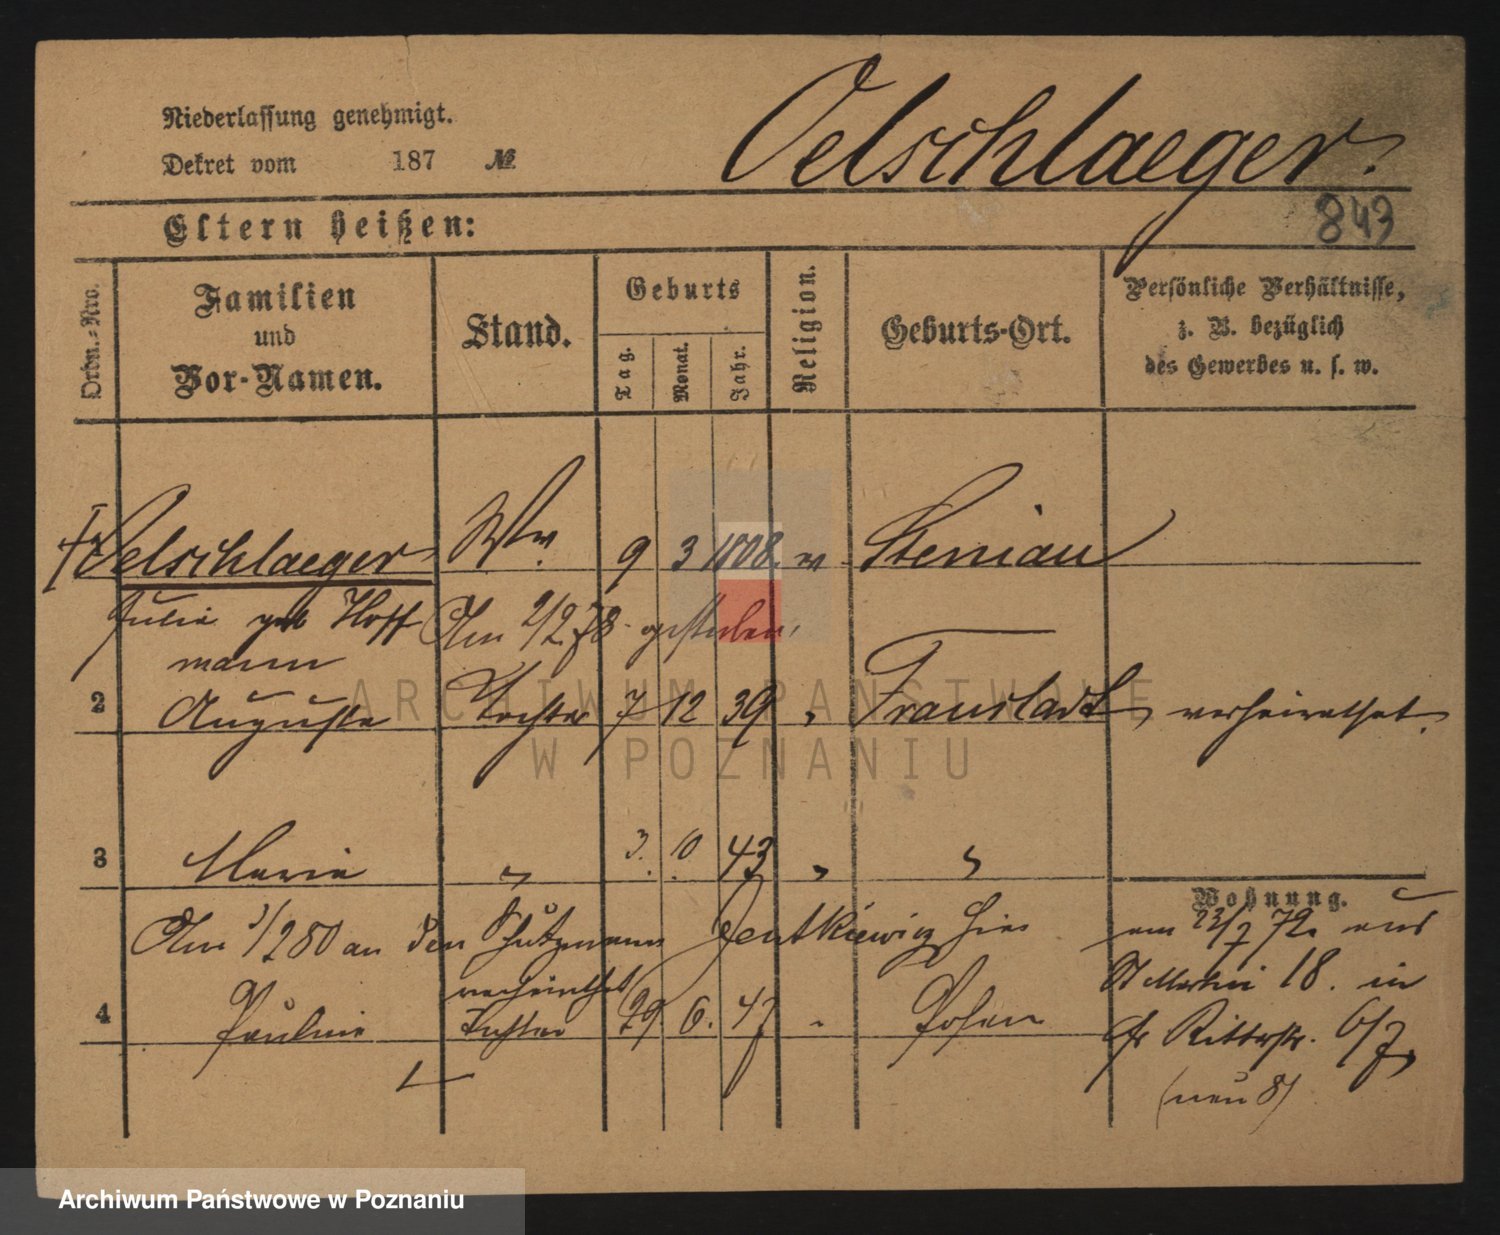 Niederlassung genehmigt.
Dekret vom 187 №
Oelschlaeger.
843
Eltern heißen:
Ordn.-Nro.
Familien
und
Vor-Namen.
Stand.
Geburts
Tag.
Monat.
Jahr.
Religion.
Geburts-Ort.
Persönliche Verhältnisse,
z. B. bezüglich
des Gewerbes u. s. w.
Oelschlaeger Ww. 9 3 1808.
Julie geb Hoff Am 2/2 78 gestorben.
mann
2 Auguste Tochter 7 12 39 " Fraustadt verheirathet.
3 Marie " 3. 10. 43 " "
Wohnung.
Am 3/2 80 an den Schutzmann hier
am 23/7 72 aus
verheirathet
St Martin 18. in
4 Pauline Tochter 29. 6. 47 " Posen
Gr Ritterstr. 6/7,
(neu 8)
ARCHIWUM PAŃSTWOWE
W POZNANIU
Archiwum Państwowe w Poznaniu